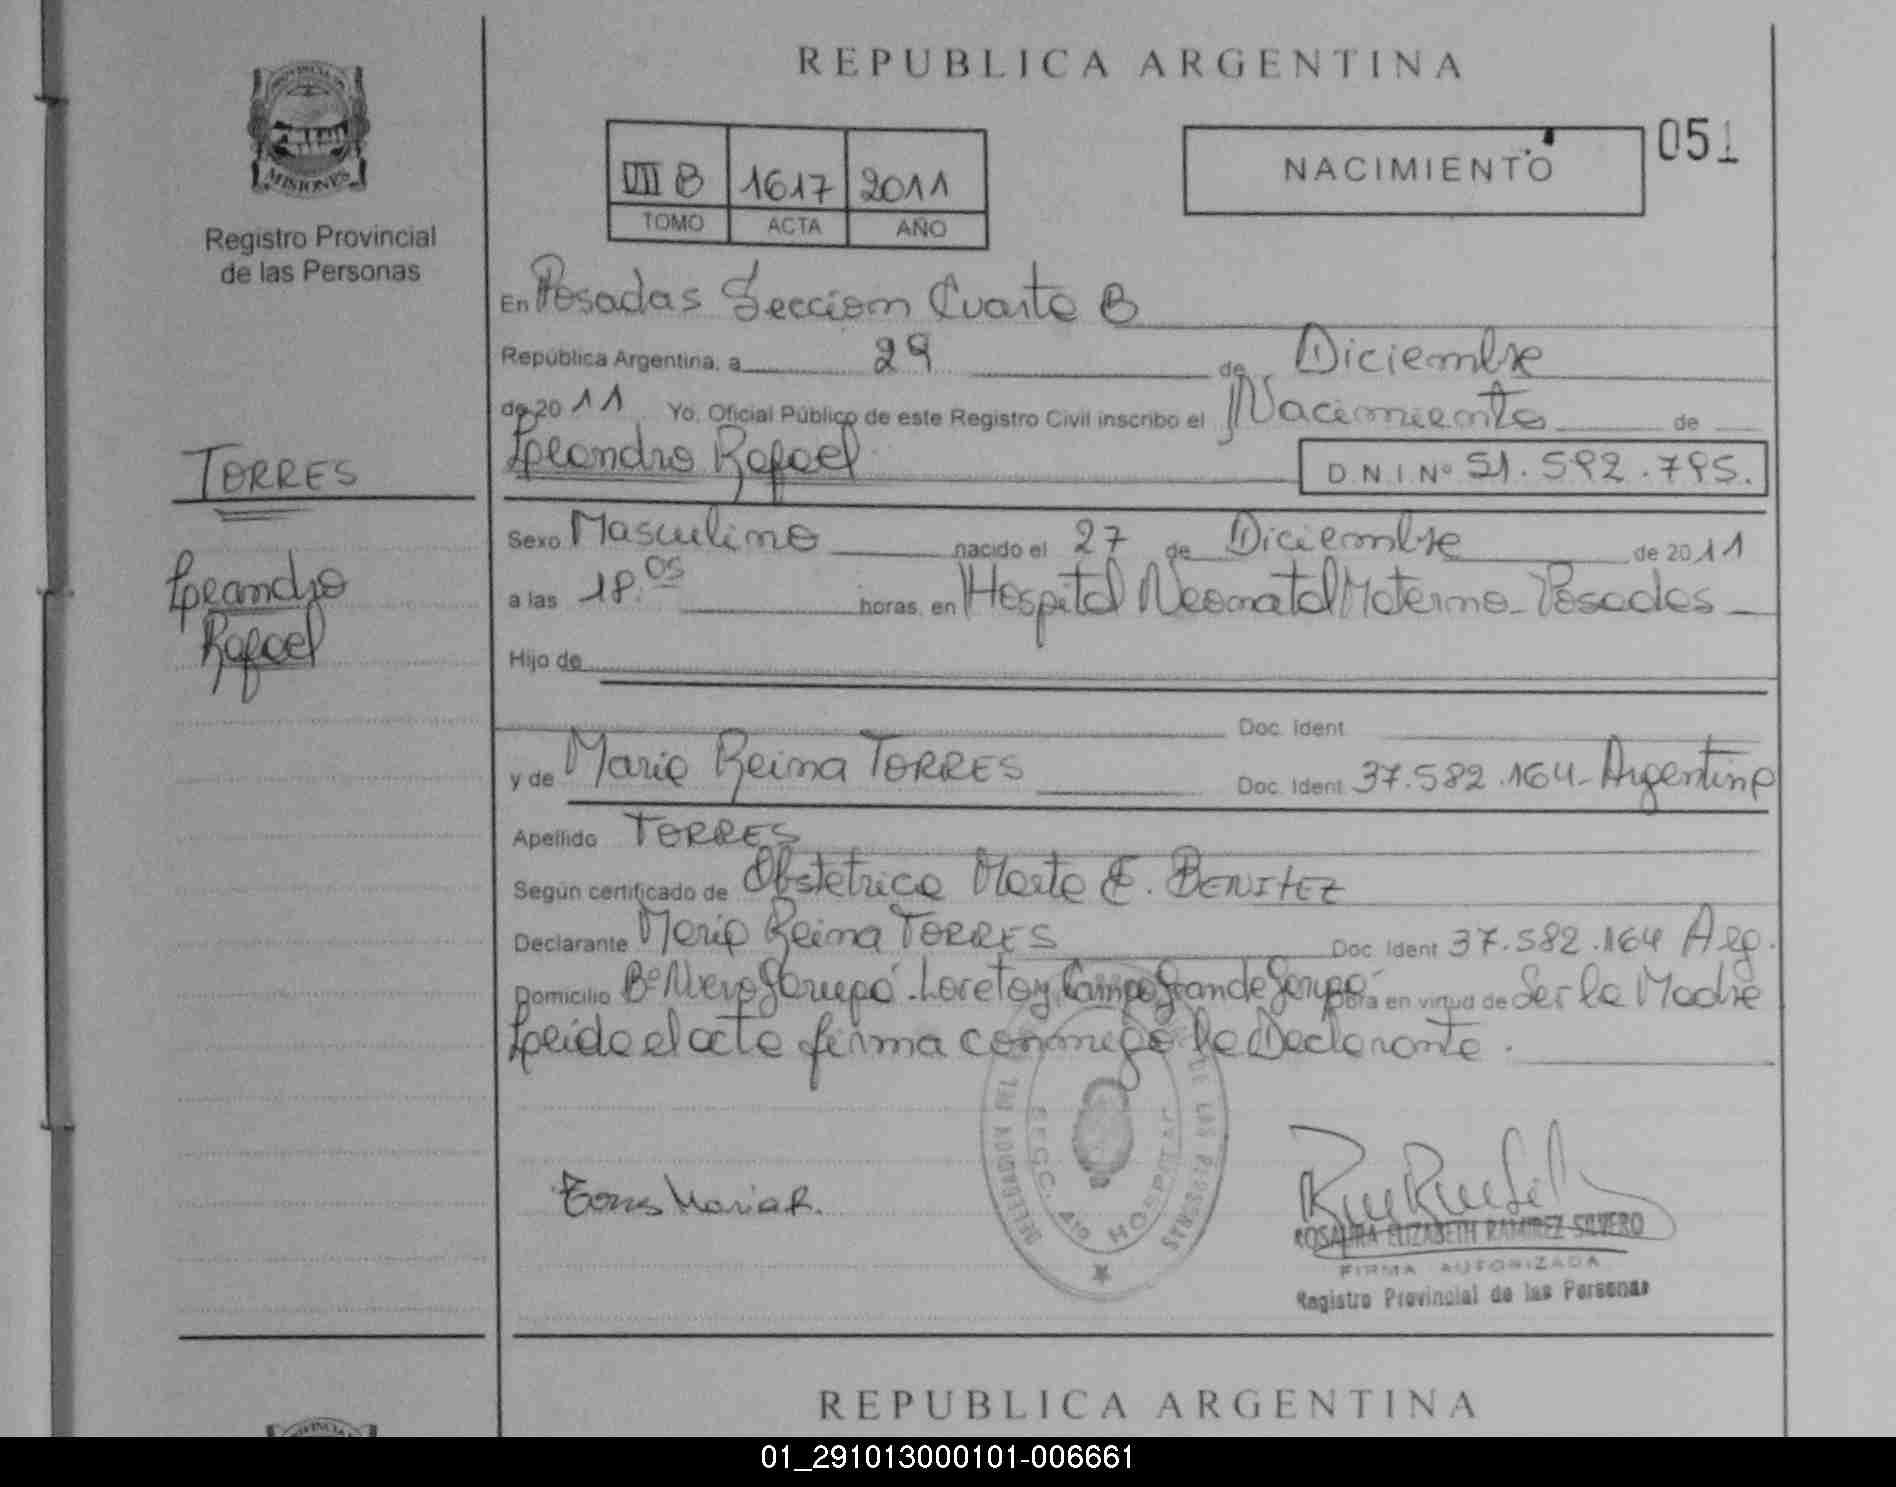 REPUBLICA ARGENTINA
PROVINCIA DE
MISIONES
Registro Provincial
de las Personas
VIII B 1617 2011
TOMO ACTA AÑO
NACIMIENTO
051
En Posadas Seccion Cuarta B
República Argentina, a 29 de Diciembre
de 2011 Yo, Oficial Público de este Registro Civil inscribo el Nacimiento de
Leandro Rafael D.N.I.Nº 51.592.795.
TORRES
Leandro
Rafael
Sexo Masculino nacido el 27 de Diciembre de 2011
a las 18.05 horas, en Hospital Neonatal Materno - Posadas
Hijo de
Doc. Ident
y de Maria Reina TORRES Doc. Ident 37.582.164 - Argentina
Apellido TORRES
Según certificado de Obstetrica Marta E. BENITEZ
Declarante Maria Reina TORRES Doc. Ident 37.582.164 Arg.
Domicilio Bº Nuevo Garupá - Loreto y Campo Grande Garupá Obra en virtud de Ser la Madre
Leida el acta firma conmigo la Declarante.
DE LAS PERSONAS
HOSPITAL
Torres Maria R.
ROSAURA ELIZABETH RAMIREZ SILVERO
FIRMA AUTORIZADA
Registro Provincial de las Personas
REPUBLICA ARGENTINA
01_291013000101-006661